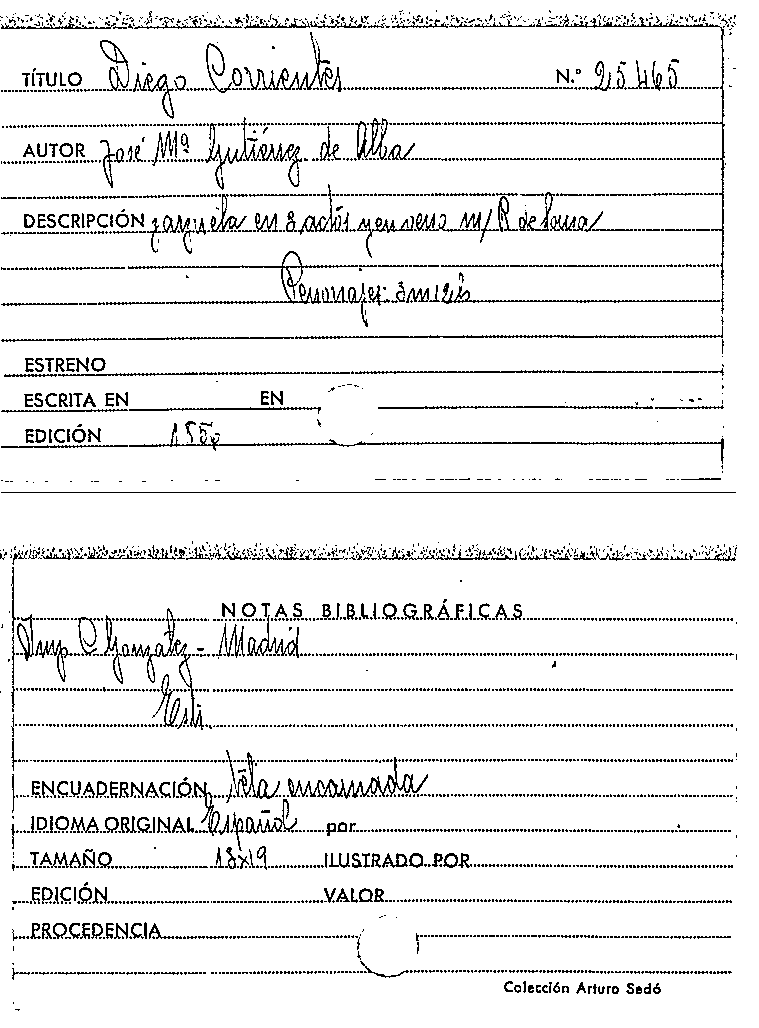 TÍTULO Diego Corrientes N.º 25465
AUTOR José Mª Gutiérrez de Alba
DESCRIPCIÓN zarzuela en 3 actos y en verso m/ R de
Personajes: 3m
ESTRENO
ESCRITA EN EN
EDICIÓN
NOTAS BIBLIOGRÁFICAS
Imp C González - Madrid
ENCUADERNACIÓN tela encarnada
IDIOMA ORIGINAL Español por
TAMAÑO 13x19 ILUSTRADO POR
EDICIÓN VALOR
PROCEDENCIA
Colección Arturo Sedó